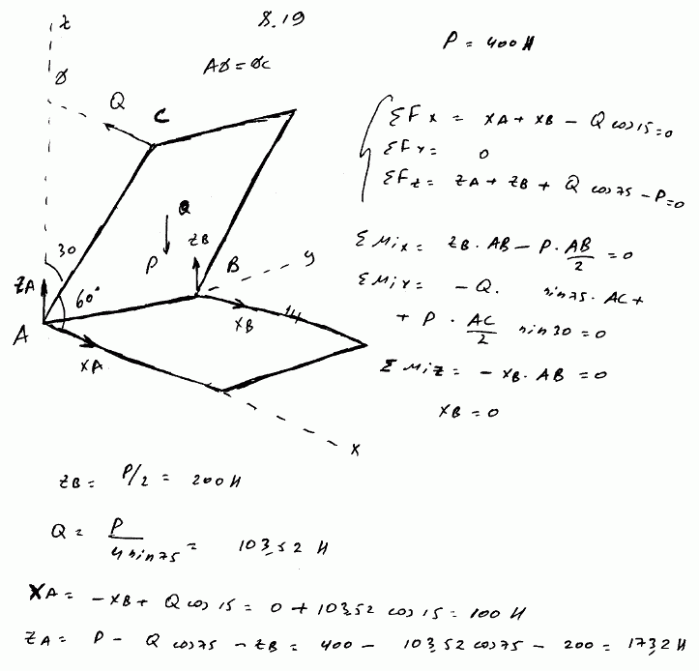 8.19
z
P = 400 Н
AD = DC
D
Q
C
ΣFx = XA + XB − Q cos 15 = 0
ΣFY = 0
ΣFz = ZA + ZB + Q cos 75 − P = 0
Q
30
P
ZB
B
y
ZA
60°
ΣMix = ZB · AB − P · AB/2 = 0
ΣMiY = − Q · sin 75 · AC +
+ P · AC/2 sin 30 = 0
A
XA
XB
ΣMiz = − XB · AB = 0
XB = 0
x
ZB = P/2 = 200 Н
Q = P/4 sin 75 = 103,52 Н
XA = − XB + Q cos 15 = 0 + 103,52 cos 15 = 100 Н
ZA = P − Q cos 75 − ZB = 400 − 103,52 cos 75 − 200 = 173,2 Н